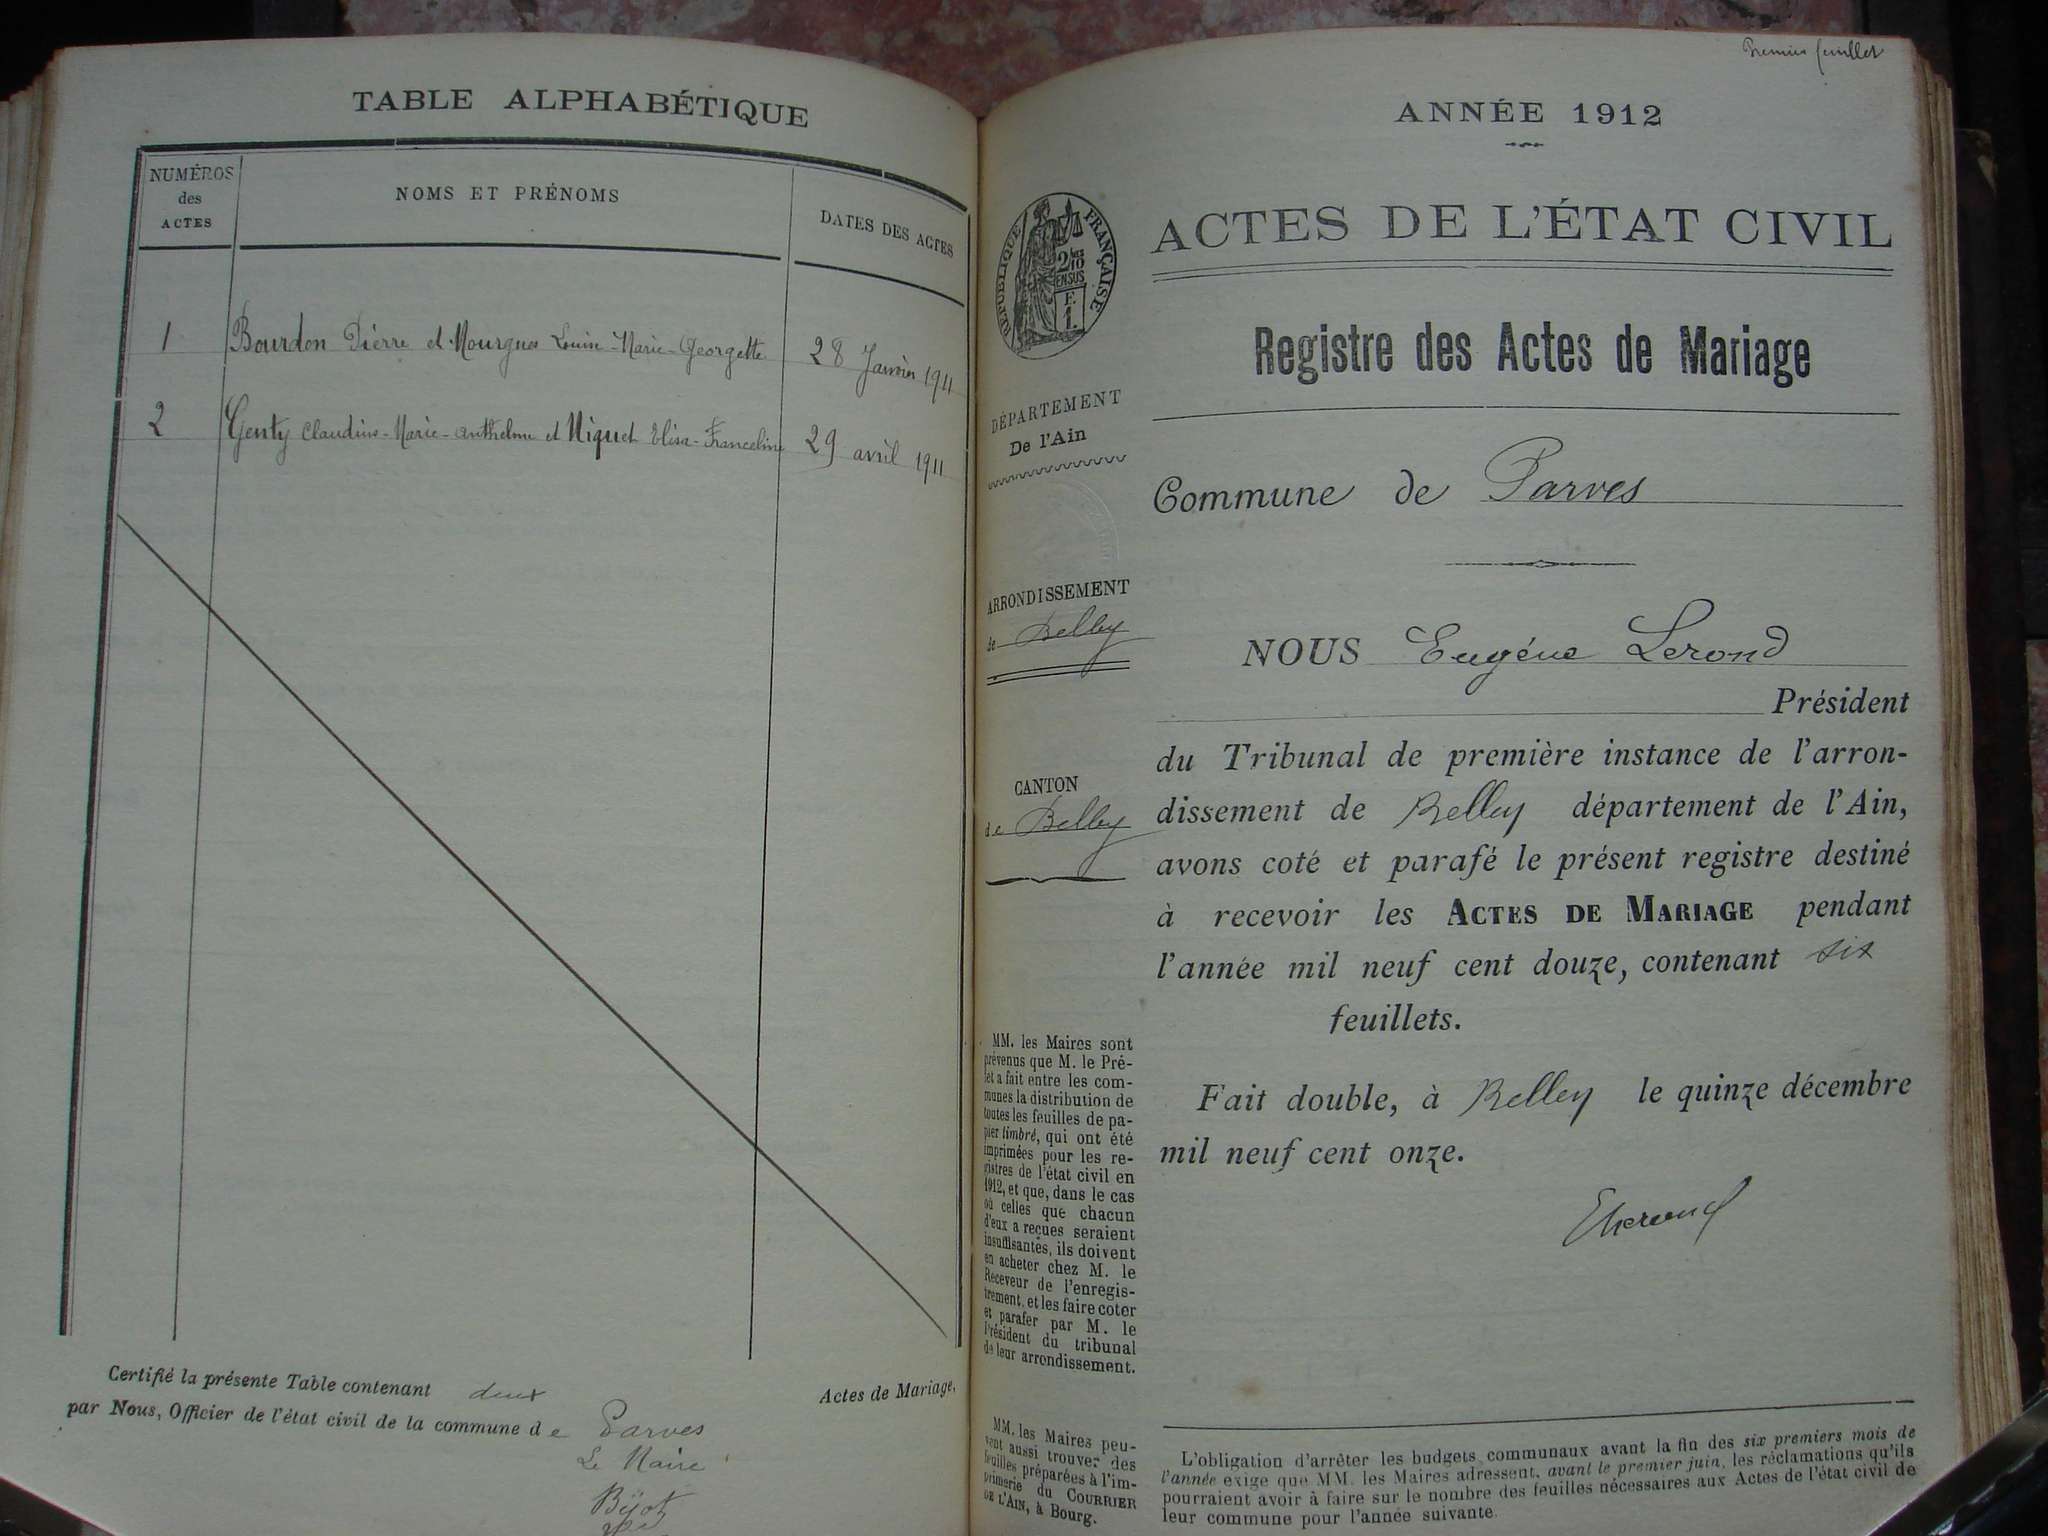 TABLE ALPHABÉTIQUE
NUMÉROS
des
ACTES
NOMS ET PRÉNOMS
DATES DES ACTES
1 Bourdon Pierre et Mourgues Louise-Marie-Georgette 28 Janvier 1911
2 Genty Claudius-Marie-Anthelme et Miguet Elisa-Franceline 29 avril 1911
Certifié la présente Table contenant deux Actes de Mariage,
par Nous, Officier de l'état civil de la commune de Parves
Le Maire
Premier feuillet
ANNÉE 1912
ACTES DE L'ÉTAT CIVIL
RÉPUBLIQUE FRANÇAISE
2/10
EN SUS
F.
1.
Registre des Actes de Mariage
DÉPARTEMENT
De l'Ain
Commune de Parves
ARRONDISSEMENT
de Belley
CANTON
de Belley
NOUS Eugène Lerond
Président
du Tribunal de première instance de l'arron-
dissement de Belley département de l'Ain,
avons coté et parafé le présent registre destiné
à recevoir les ACTES DE MARIAGE pendant
l'année mil neuf cent douze, contenant six
feuillets.
Fait double, à Belley le quinze décembre
mil neuf cent onze.
MM. les Maires sont
prévenus que M. le Pré-
fet a fait entre les com-
munes la distribution de
toutes les feuilles de pa-
pier timbré, qui ont été
imprimées pour les re-
gistres de l'état civil en
1912, et que, dans le cas
où celles que chacun
d'eux a reçues seraient
insuffisantes, ils doivent
en acheter chez M. le
Receveur de l'enregis-
trement, et les faire coter
et parafer par M. le
Président du tribunal
de leur arrondissement.
MM. les Maires peu-
vent aussi trouver des
feuilles préparées à l'im-
primerie du COURRIER
DE L'AIN, à Bourg.
L'obligation d'arrêter les budgets communaux avant la fin des six premiers mois de
l'année exige que MM. les Maires adressent, avant le premier juin, les réclamations qu'ils
pourraient avoir à faire sur le nombre des feuilles nécessaires aux Actes de l'état civil de
leur commune pour l'année suivante.